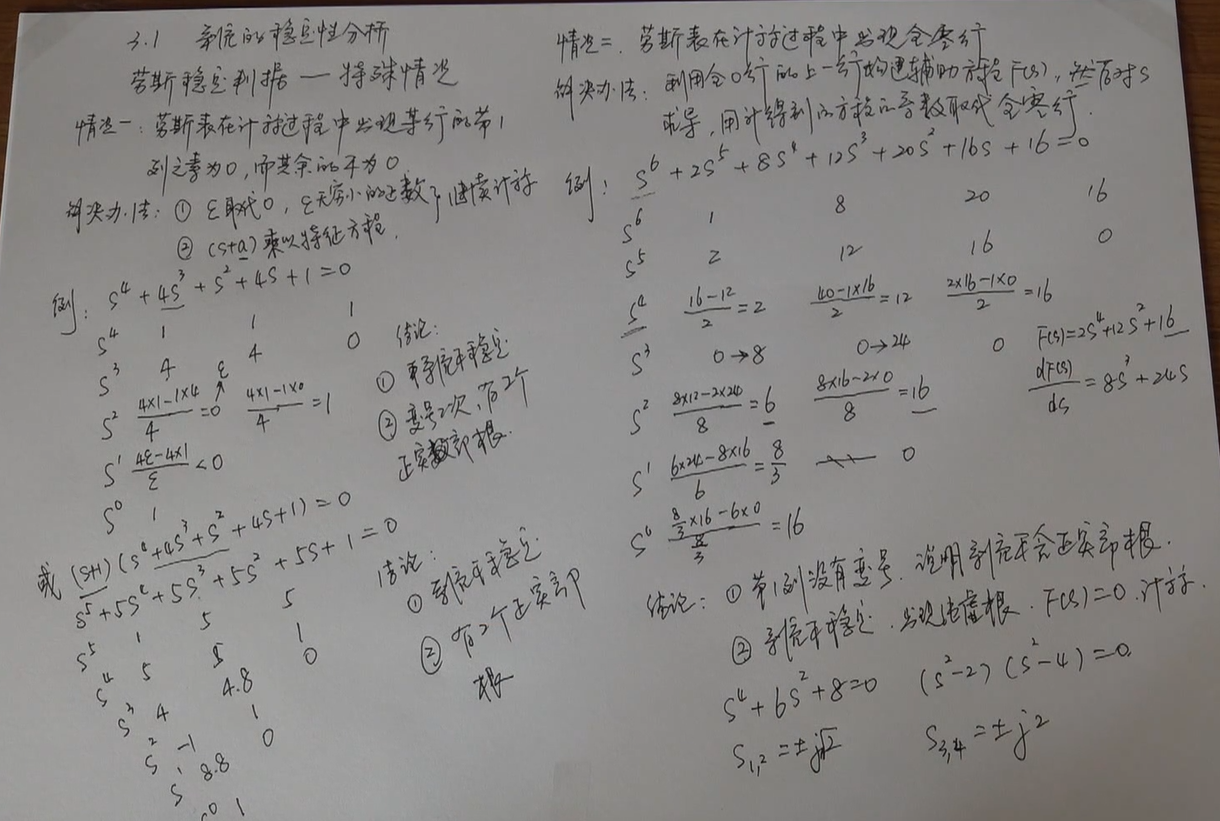 3.1 系统的稳定性分析
劳斯稳定判据 — 特殊情况
情况一：劳斯表在计算过程中出现某行的第1
列元素为0，而其余的不为0
解决办法：① ε取代0，ε无穷小的正数，继续计算
② (s+a)乘以特征方程．
例：s⁴+4s³+s²+4s+1=0
s⁴ 1 1 1
s³ 4 4 0
ε
s² (4×1-1×4)/4=0 (4×1-1×0)/4=1
s¹ (4ε-4×1)/ε<0
s⁰ 1
结论：
①系统不稳定
②变号2次，有2个
正实数部根．
或 (s+1)(s⁴+4s³+s²+4s+1)=0
s⁵+5s⁴+5s³+5s²+5s+1=0
s⁵ 1 5 5
s⁴ 5 5 1
s³ 4 4.8 0
s² -1 1
s¹ 8.8 0
s⁰ 1
结论：
①系统不稳定
②有2个正实部
根
情况二．劳斯表在计算过程中出现全零行
解决办法：利用全0行的上一行构建辅助方程F(s)，然后对s
求导，用计得到的方程的系数取代全零行．
例：s⁶+2s⁵+8s⁴+12s³+20s²+16s+16=0
s⁶ 1 8 20 16
s⁵ 2 12 16 0
s⁴ (16-12)/2=2 (40-1×16)/2=12 (2×16-1×0)/2=16
s³ 0→8 0→24 0
F(s)=2s⁴+12s²+16
dF(s)/ds=8s³+24s
s² (8×12-2×24)/8=6 (8×16-2×0)/8=16
s¹ (6×24-8×16)/6=8/3 0
s⁰ (8/3×16-6×0)/(8/3)=16
结论：①第1列没有变号．说明系统不含正实部根．
②系统不稳定．出现纯虚根．F(s)=0．计算．
s⁴+6s²+8=0 (s²-2)(s²-4)=0
s₁,₂=±j√2 s₃,₄=±j2